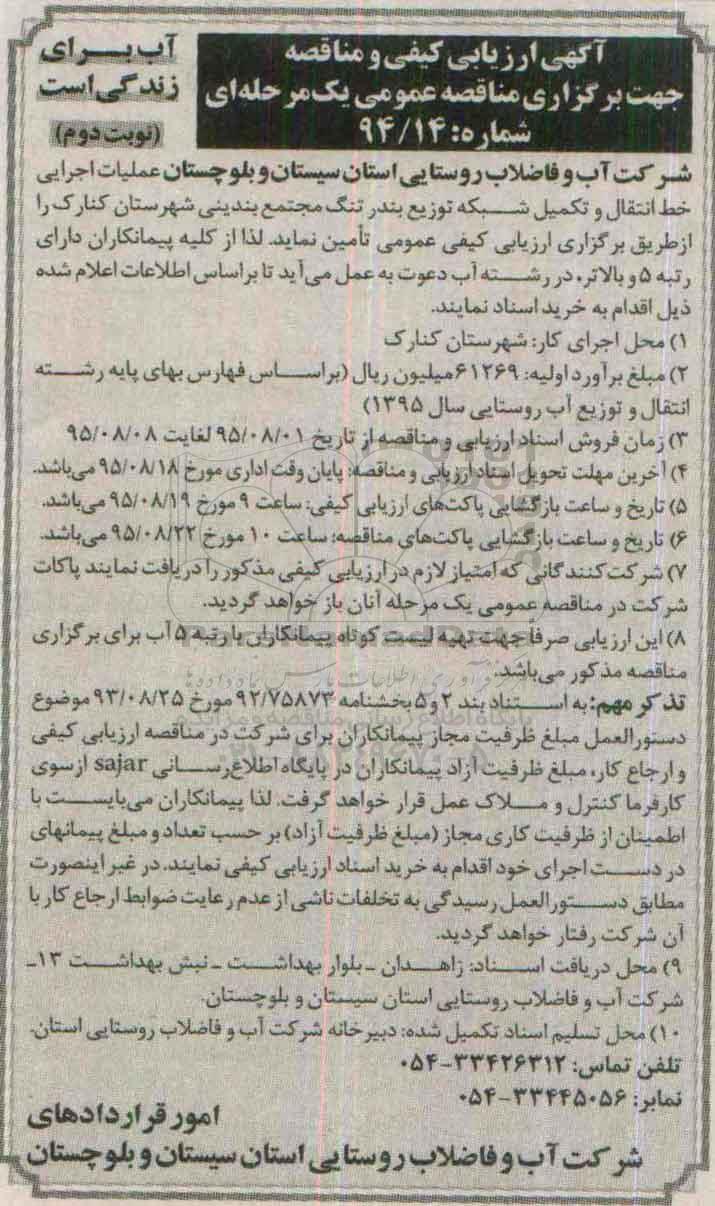 آگهی ارزیابی کیفی و مناقصه
جهت برگزاری مناقصه عمومی یک مرحله‌ای
شماره: ۹۴/۱۴
آب بـرای
زندگی است
(نوبت دوم)
شرکت آب و فاضلاب روستایی استان سیستان و بلوچستان عملیات اجرایی
خط انتقال و تکمیل شبکه توزیع بندر تنگ مجتمع بندینی شهرستان کنارک را
از طریق برگزاری ارزیابی کیفی عمومی تأمین نماید. لذا از کلیه پیمانکاران دارای
رتبه ۵ و بالاتر، در رشته آب دعوت به عمل می‌آید تا براساس اطلاعات اعلام شده
ذیل اقدام به خرید اسناد نمایند.
۱) محل اجرای کار: شهرستان کنارک
۲) مبلغ برآورد اولیه: ۶۱۲۶۹ میلیون ریال (براساس فهارس بهای پایه رشته
انتقال و توزیع آب روستایی سال ۱۳۹۵)
۳) زمان فروش اسناد ارزیابی و مناقصه از تاریخ ۹۵/۰۸/۰۱ لغایت ۹۵/۰۸/۰۸
۴) آخرین مهلت تحویل اسناد ارزیابی و مناقصه: پایان وقت اداری مورخ ۹۵/۰۸/۱۸ می‌باشد.
۵) تاریخ و ساعت بازگشایی پاکت‌های ارزیابی کیفی: ساعت ۹ مورخ ۹۵/۰۸/۱۹ می‌باشد.
۶) تاریخ و ساعت بازگشایی پاکت‌های مناقصه: ساعت ۱۰ مورخ ۹۵/۰۸/۲۲ می‌باشد.
۷) شرکت‌کنندگانی که امتیاز لازم در ارزیابی کیفی مذکور را دریافت نمایند پاکات
شرکت در مناقصه عمومی یک مرحله آنان باز خواهد گردید.
۸) این ارزیابی صرفاً جهت تهیه لیست کوتاه پیمانکاران با رتبه ۵ آب برای برگزاری
مناقصه مذکور می‌باشد.
تذکر مهم: به استناد بند ۲ و ۵ بخشنامه ۹۲/۷۵۸۷۳ مورخ ۹۳/۰۸/۲۵ موضوع
دستورالعمل مبلغ ظرفیت مجاز پیمانکاران برای شرکت در مناقصه ارزیابی کیفی
و ارجاع کار، مبلغ ظرفیت آزاد پیمانکاران در پایگاه اطلاع‌رسانی sajar ازسوی
کارفرما کنترل و ملاک عمل قرار خواهد گرفت. لذا پیمانکاران می‌بایست با
اطمینان از ظرفیت کاری مجاز (مبلغ ظرفیت آزاد) بر حسب تعداد و مبلغ پیمانهای
در دست اجرای خود اقدام به خرید اسناد ارزیابی کیفی نمایند. در غیر اینصورت
مطابق دستورالعمل رسیدگی به تخلفات ناشی از عدم رعایت ضوابط ارجاع کار با
آن شرکت رفتار خواهد گردید.
۹) محل دریافت اسناد: زاهدان ـ بلوار بهداشت ـ نبش بهداشت ۱۳ـ
شرکت آب و فاضلاب روستایی استان سیستان و بلوچستان.
۱۰) محل تسلیم اسناد تکمیل شده: دبیرخانه شرکت آب و فاضلاب روستایی استان.
تلفن تماس: ۳۳۴۲۶۳۱۲-۰۵۴
نمابر: ۳۳۴۴۵۰۵۶-۰۵۴
امور قراردادهای
شرکت آب و فاضلاب روستایی استان سیستان و بلوچستان